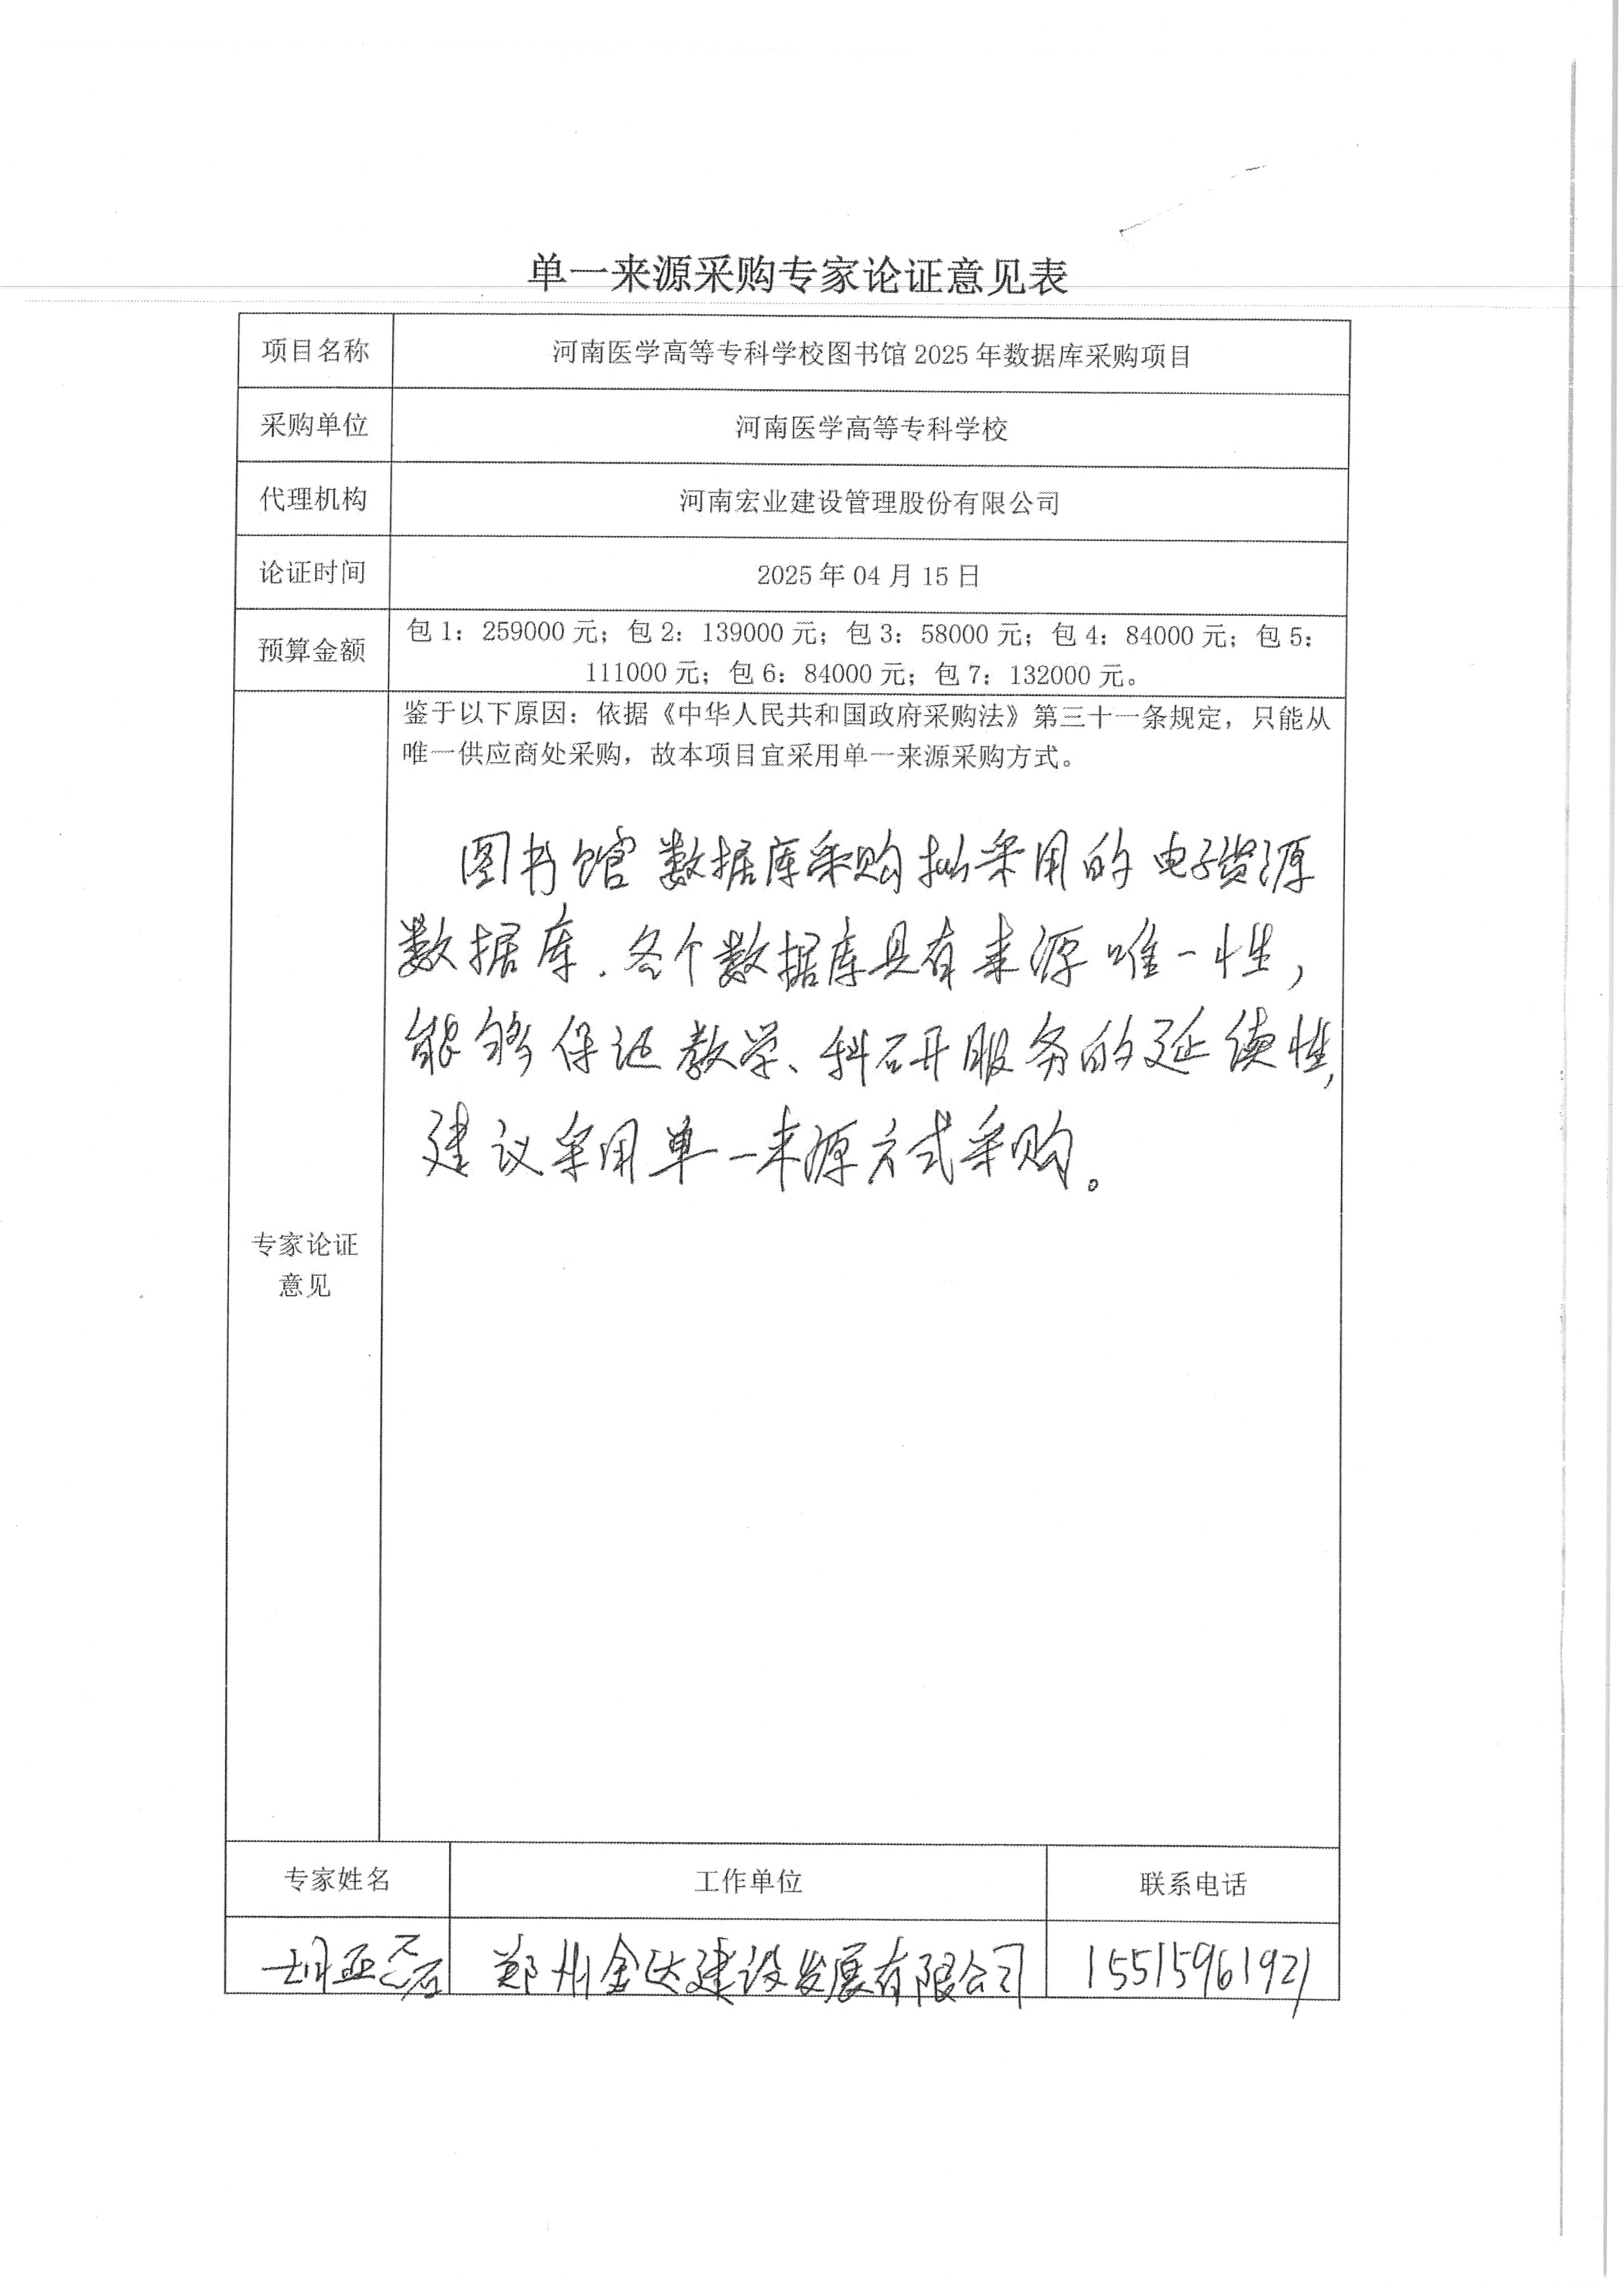 单一来源采购专家论证意见表
项目名称 河南医学高等专科学校图书馆 2025 年数据库采购项目
采购单位 河南医学高等专科学校
代理机构 河南宏业建设管理股份有限公司
论证时间 2025 年 04 月 15 日
预算金额 包 1：259000 元；包 2：139000 元；包 3：58000 元；包 4：84000 元；包 5：
111000 元；包 6：84000 元；包 7：132000 元。
鉴于以下原因：依据《中华人民共和国政府采购法》第三十一条规定，只能从
唯一供应商处采购，故本项目宜采用单一来源采购方式。
图书馆数据库采购拟采用的电子资源
数据库.各个数据库具有来源唯一性，
能够保证教学、科研服务的延续性，
建议采用单一来源方式采购。
专家论证
意见
专家姓名 工作单位 联系电话
郑州金达建设发展有限公司 15515961921